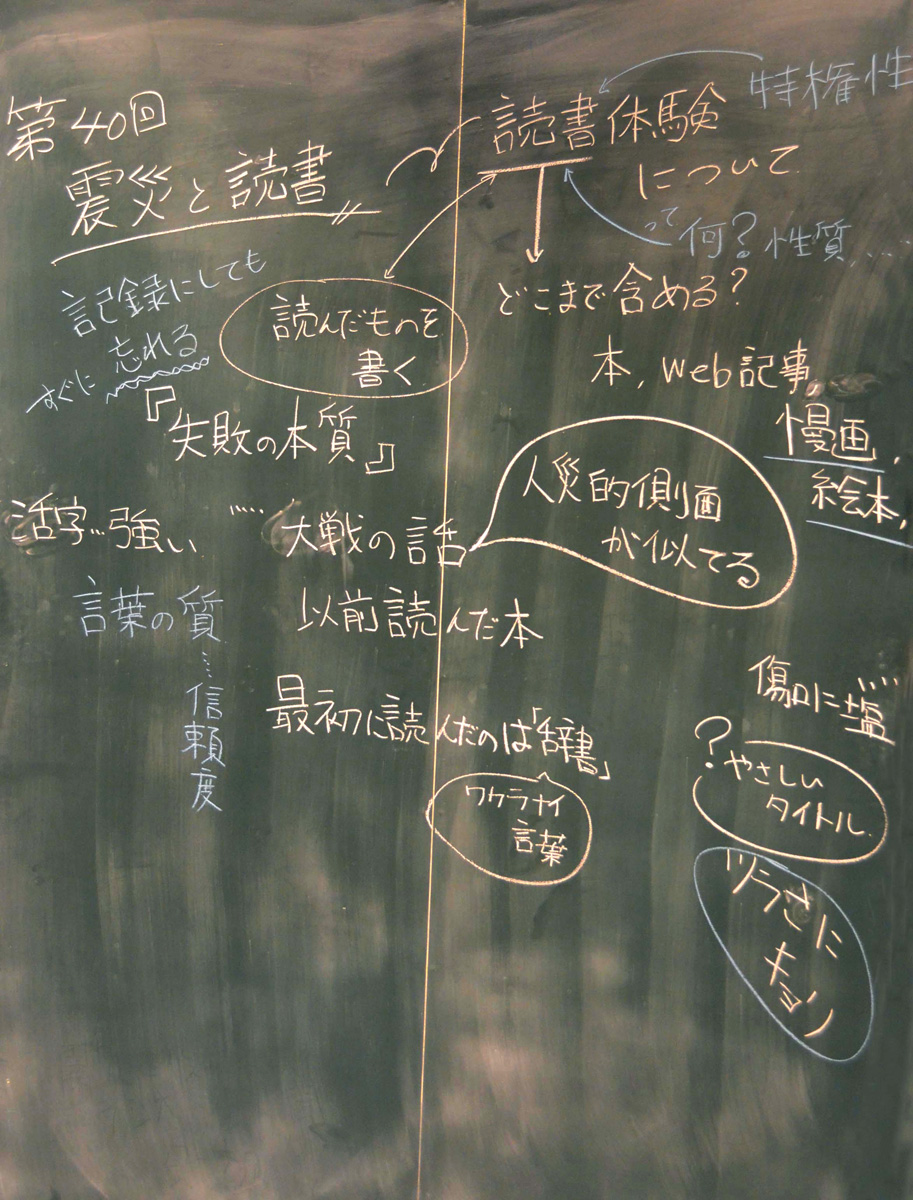 第40回
震災と読書
記録にしても
すぐに忘れる
読んだものを
書く
『失敗の本質』
活字…強い
言葉の質
…信頼度
……大戦の話
以前読んだ本
最初に読んだのは「辞書」
ワカラナイ
言葉
特権性
読書体験
について
って何?性質……
どこまで含める?
本,web記事,
漫画,
絵本,
人災的側面
が似てる
傷口に塩
?やさしい
タイトル
ツラさに